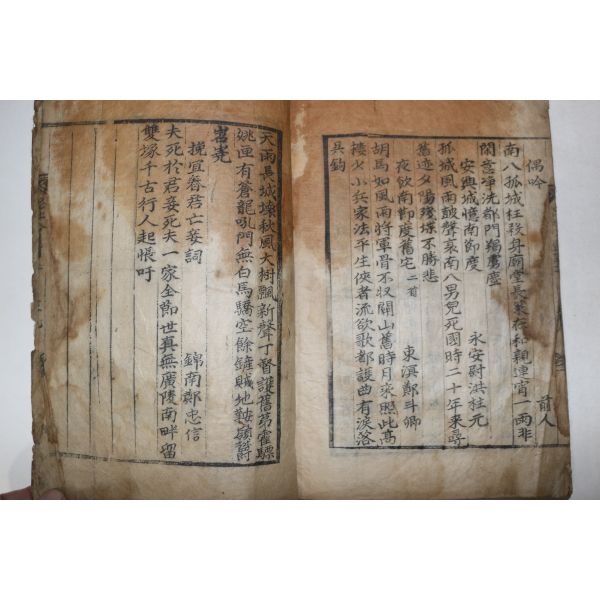 偶吟 前人
南八孤城枉致身廟堂長策在和親連宵一雨非
閒意淨洗都門羯虜塵
安興城憶南節度 永安尉洪柱元
孤城風雨鼓聲哀南八男兒死國時二十年來尋
舊迹夕陽殘堞不勝悲
夜飲南節度舊宅二首 東溟鄭斗卿
胡馬如風雨將軍骨不収關山舊時月來照此高
樓少小兵家法平生俠者流欲歌都護曲有淚落
吳鉤
天雨長城壞秋風大樹飄新聲丁督護舊第霍驃
姚匣有蒼龍吼門無白馬驕空餘鏟賊地鞍嶺欝
岧嶤
挽宜春君亡妾詞 錦南鄭忠信
夫死於君妾死夫一家全節世真無廣陵南畔留
雙塚千古行人起悵吁